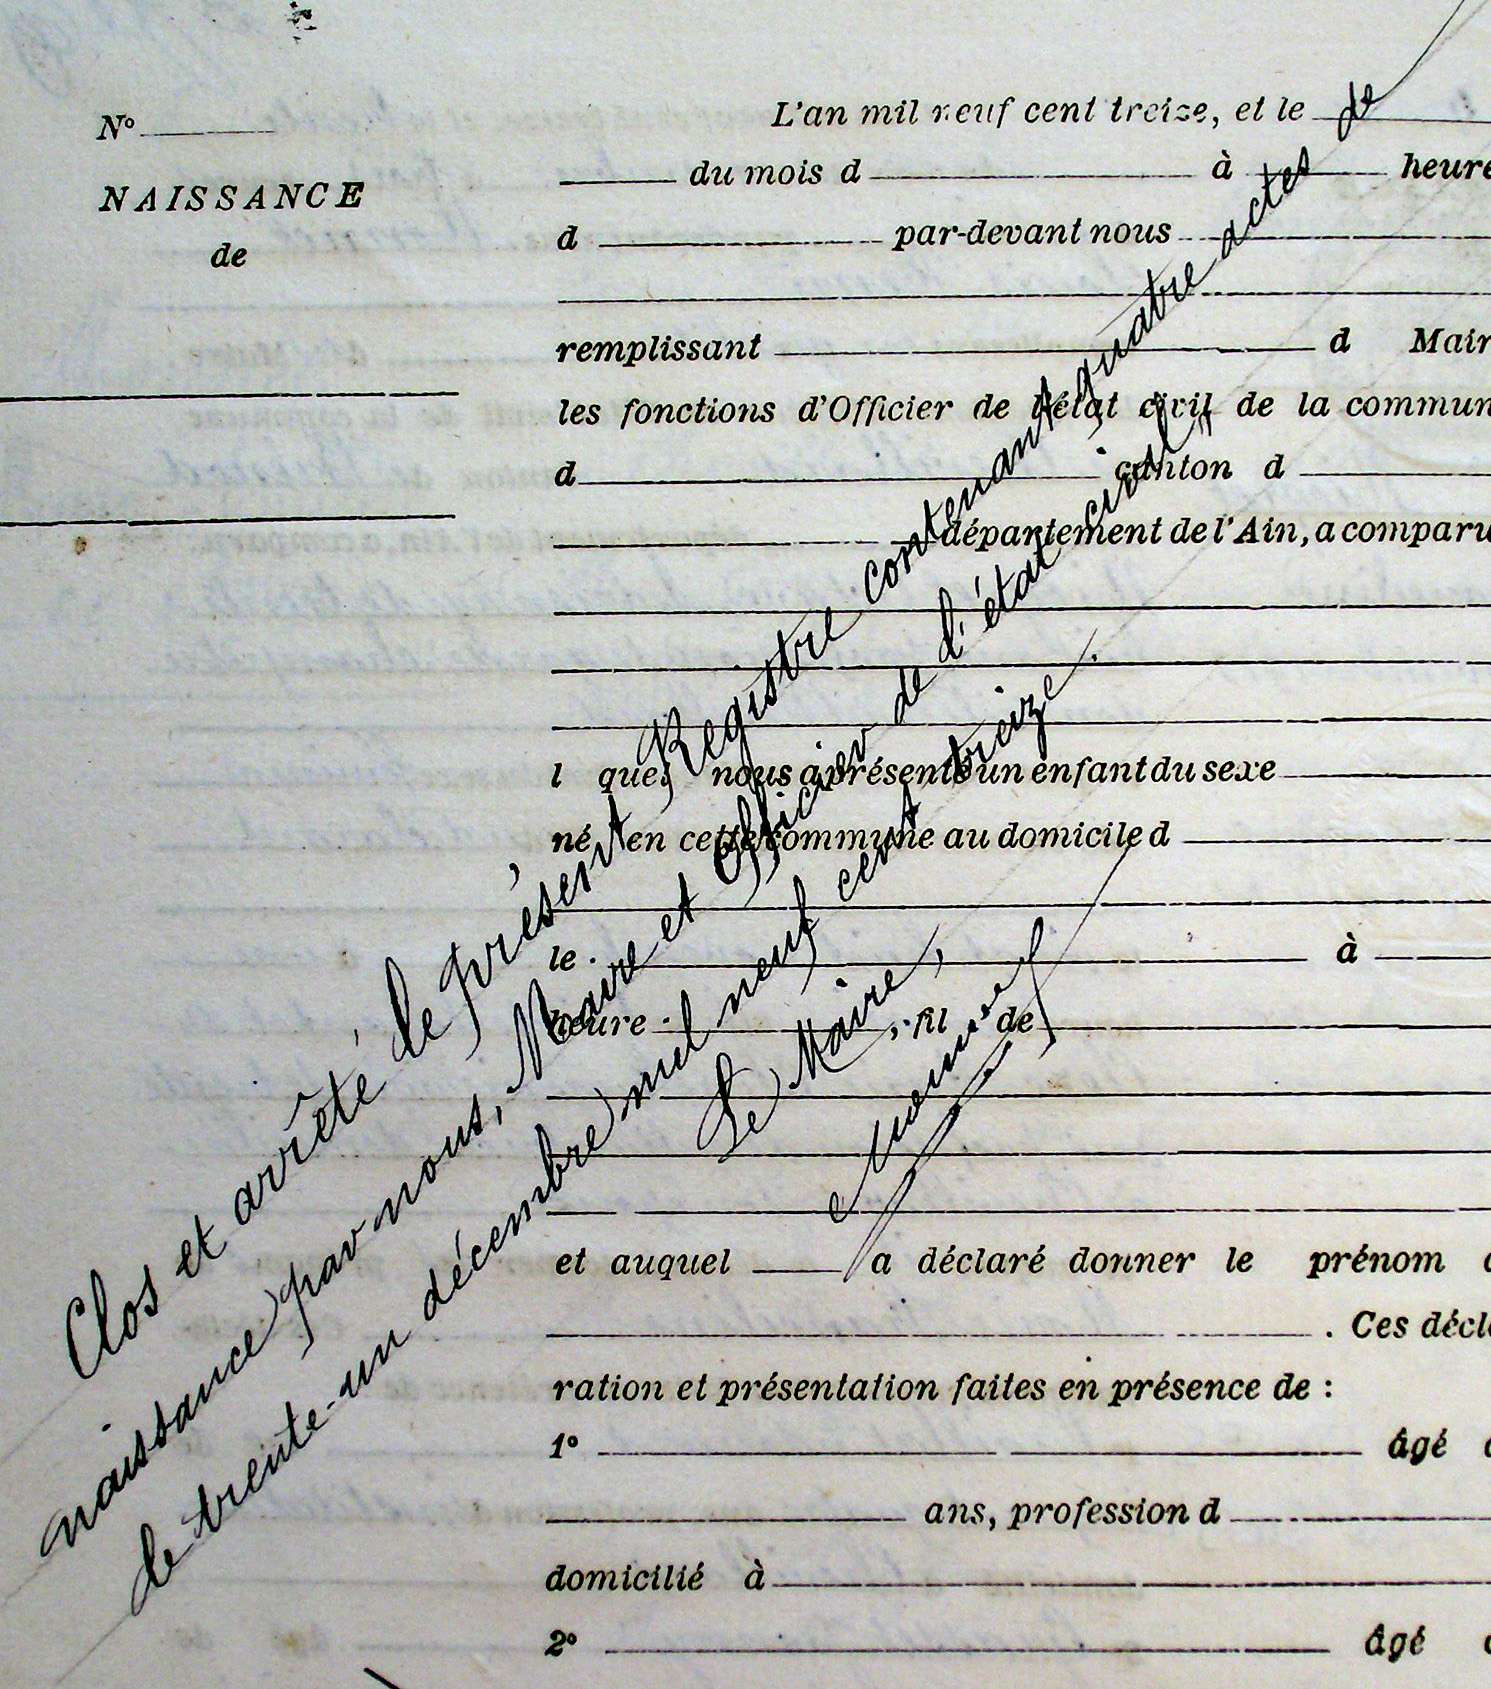 N°
NAISSANCE
de
L'an mil neuf cent treize, et le
du mois d à heure
d par-devant nous
remplissant d Mair
les fonctions d'Officier de l'état civil de la commun
d canton d
département de l'Ain, a comparu
l quel nous a présenté un enfant du sexe
né en cette commune au domicile d
le à
heure , fil de
et auquel a déclaré donner le prénom
. Ces décla
ration et présentation faites en présence de :
1° âgé
ans, profession d
domicilié à
2° âgé
Clos et arrêté le présent Registre contenant quatre actes de
naissance par nous, Maire et Officier de l'état civil,
le trente-un décembre mil neuf cent treize.
Le Maire,